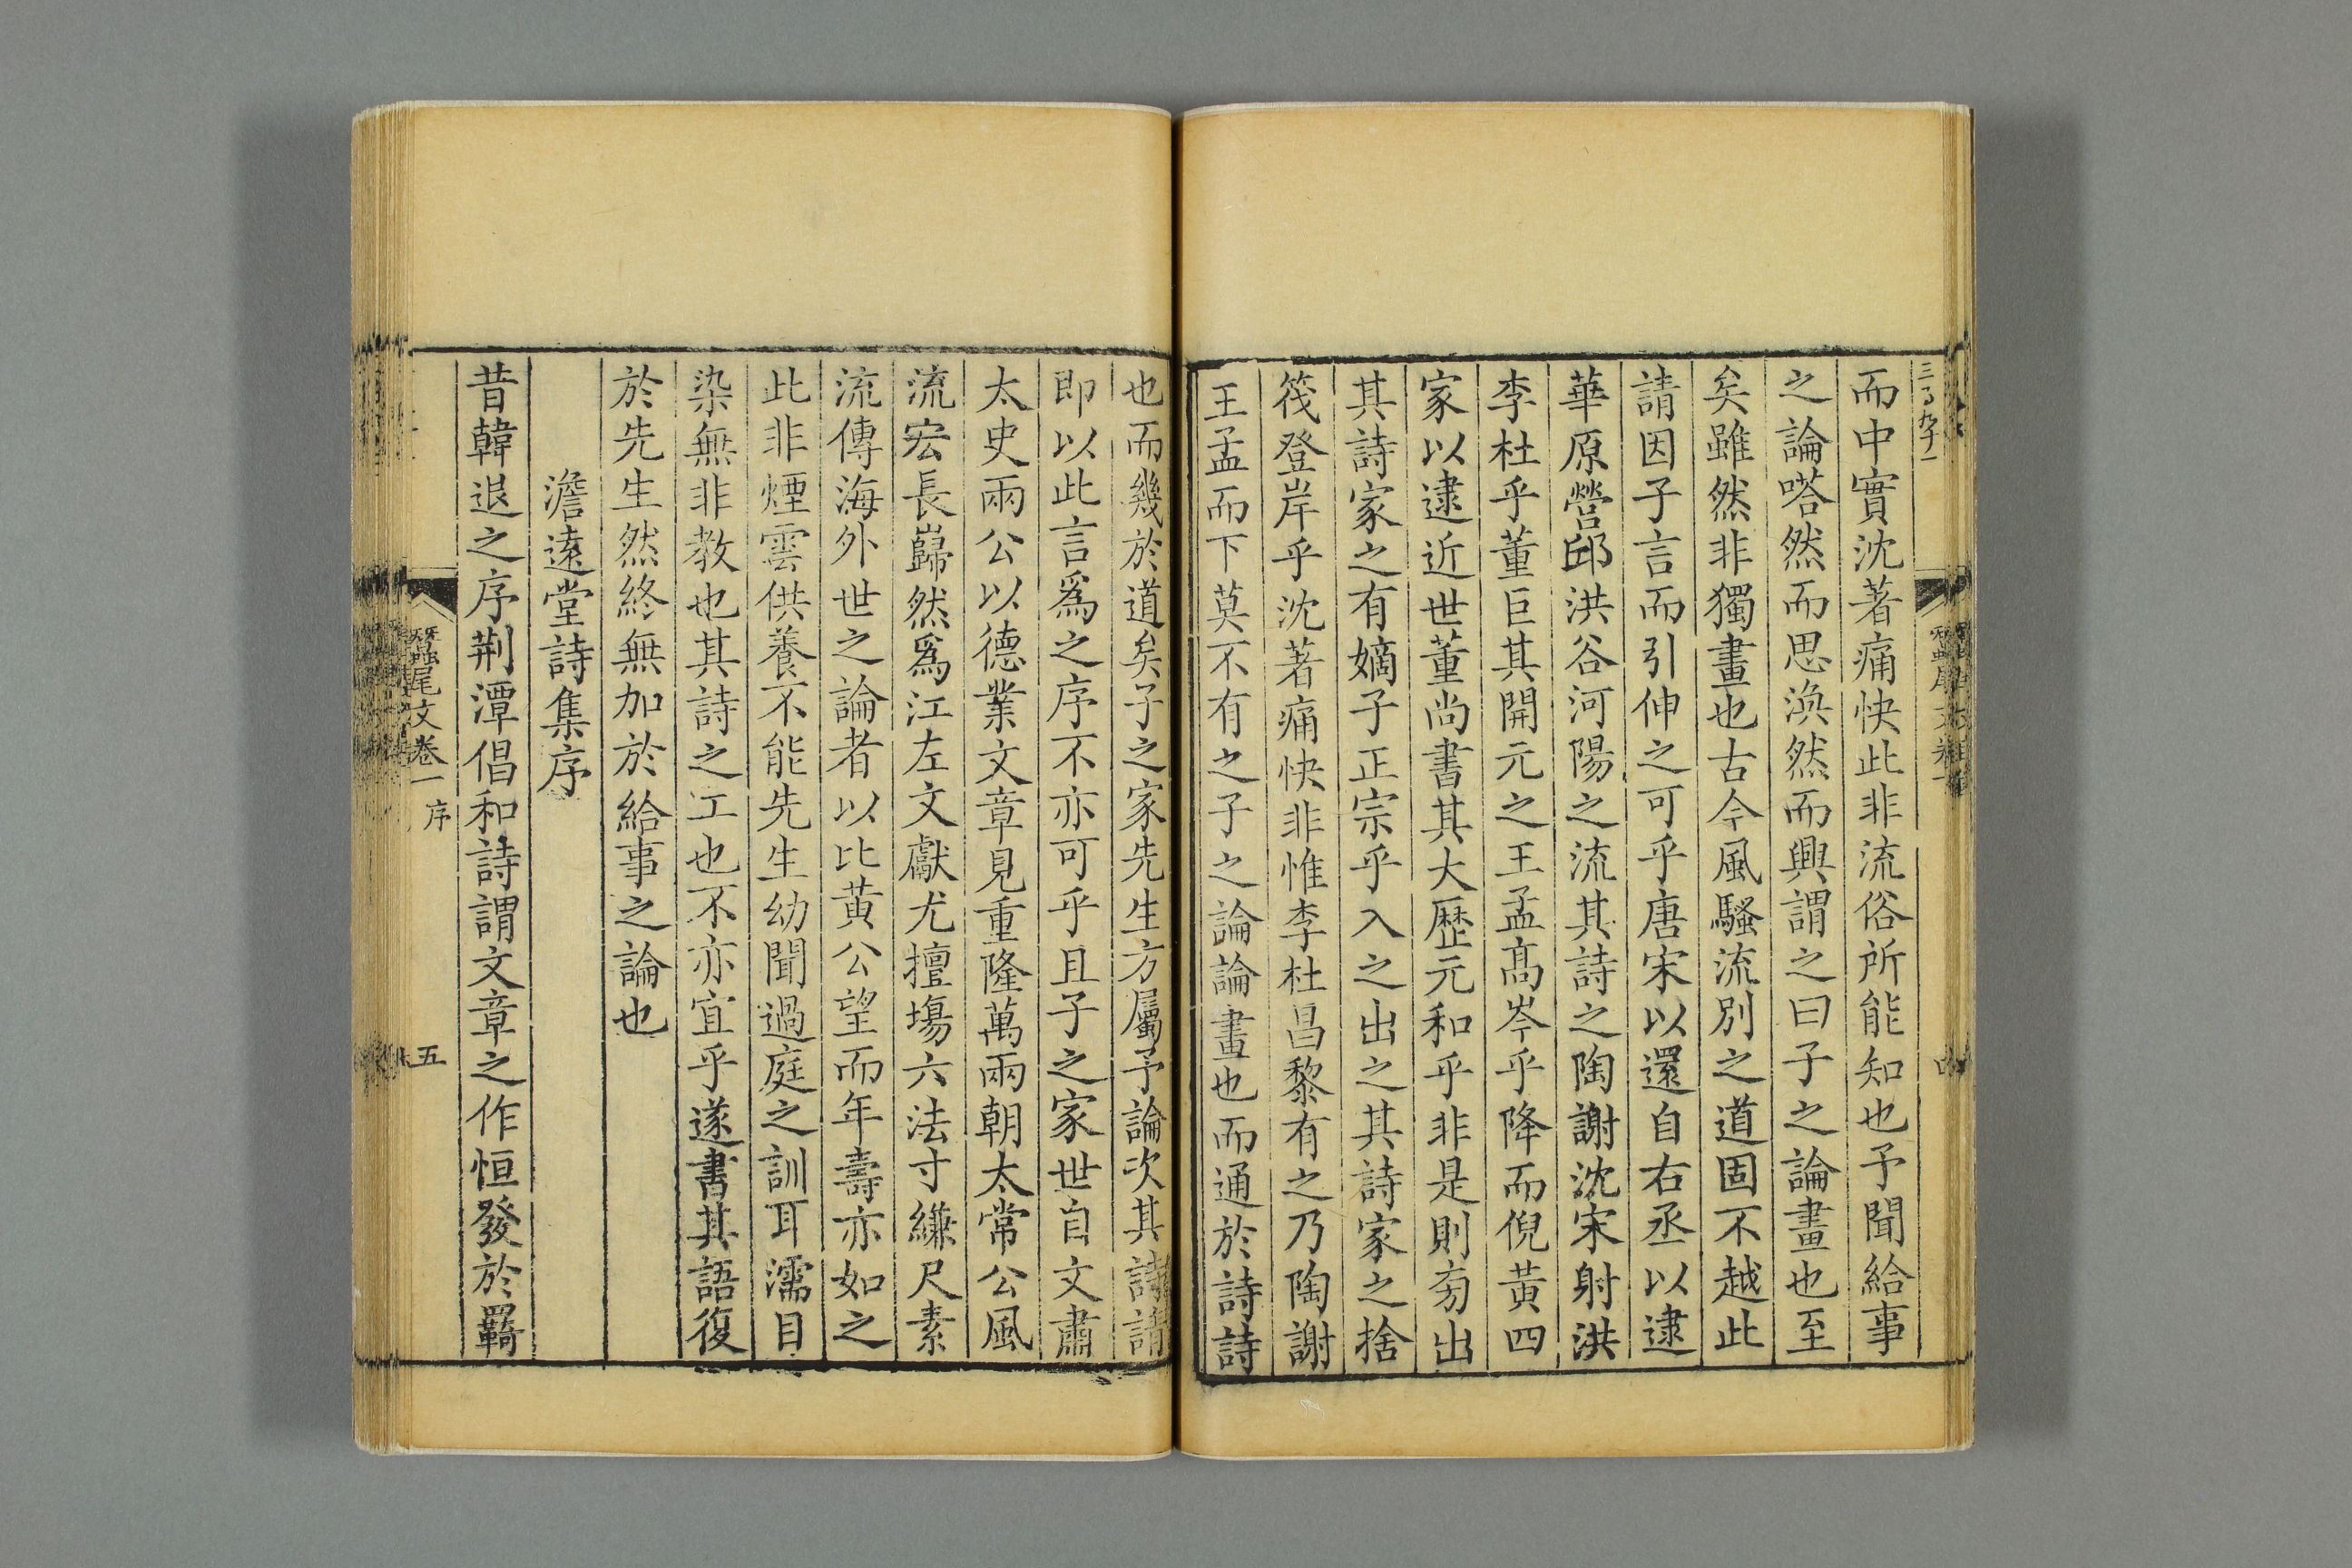 而中實沈著痛快此非流俗所能知也予聞給事
之論嗒然而思渙然而興謂之曰子之論畫也至
矣雖然非獨畫也古今風騷流別之道固不越此
請因子言而引伸之可乎唐宋以還自右丞以逮
華原營邱洪谷河陽之流其詩之陶謝沈宋射洪
李杜乎董巨其開元之王孟高岑乎降而倪黃四
家以逮近世董尚書其大歷元和乎非是則旁出
其詩家之有嫡子正宗乎入之出之其詩家之捨
筏登岸乎沈著痛快非惟李杜昌黎有之乃陶謝
王孟而下莫不有之子之論論畫也而通於詩詩
也而幾於道矣子之家先生方屬予論次其詩請
即以此言爲之序不亦可乎且子之家世自文肅
太史兩公以德業文章見重隆萬兩朝太常公風
流宏長巋然爲江左文獻尤擅塲六法寸縑尺素
流傳海外世之論者以比黃公望而年壽亦如之
此非煙雲供養不能先生幼聞過庭之訓耳濡目
染無非教也其詩之工也不亦宜乎遂書其語復
於先生然終無加於給事之論也
澹遠堂詩集序
昔韓退之序荆潭倡和詩謂文章之作恒發於羇
蠶尾文卷一 序 五